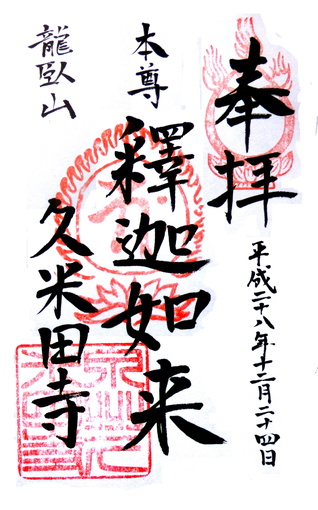 奉拝
平成二十八年十二月二十四日
本尊
釋迦如来
龍臥山
久米田寺